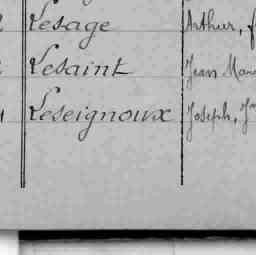 Lesage Arthur, f
Lesaint Jean Mar
Leseignoux Joseph, J